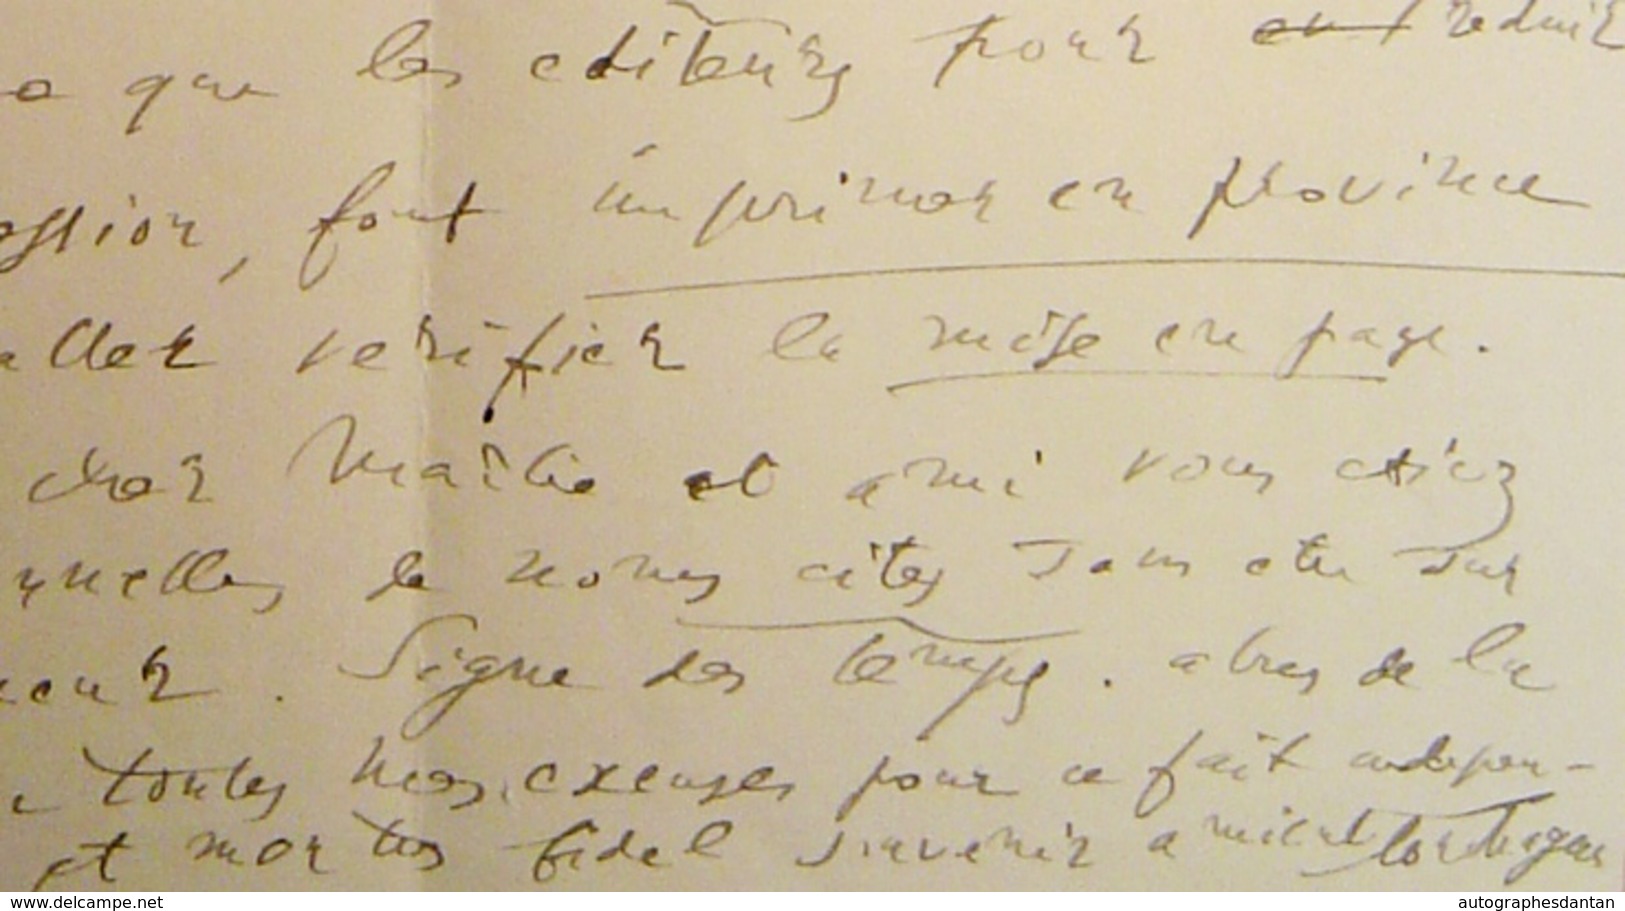 que les editeurs pour reduir
ession, font imprimer en province
aller verifier la mise en page.
cher Maitre et ami vous etiez
nuelles de noms cites sans etre sur
eur. Signe des temps. abus de la
toutes mes excuses pour ce fait indepen-
et mon très fidel souvenir amical
www.delcampe.net autographesdantan